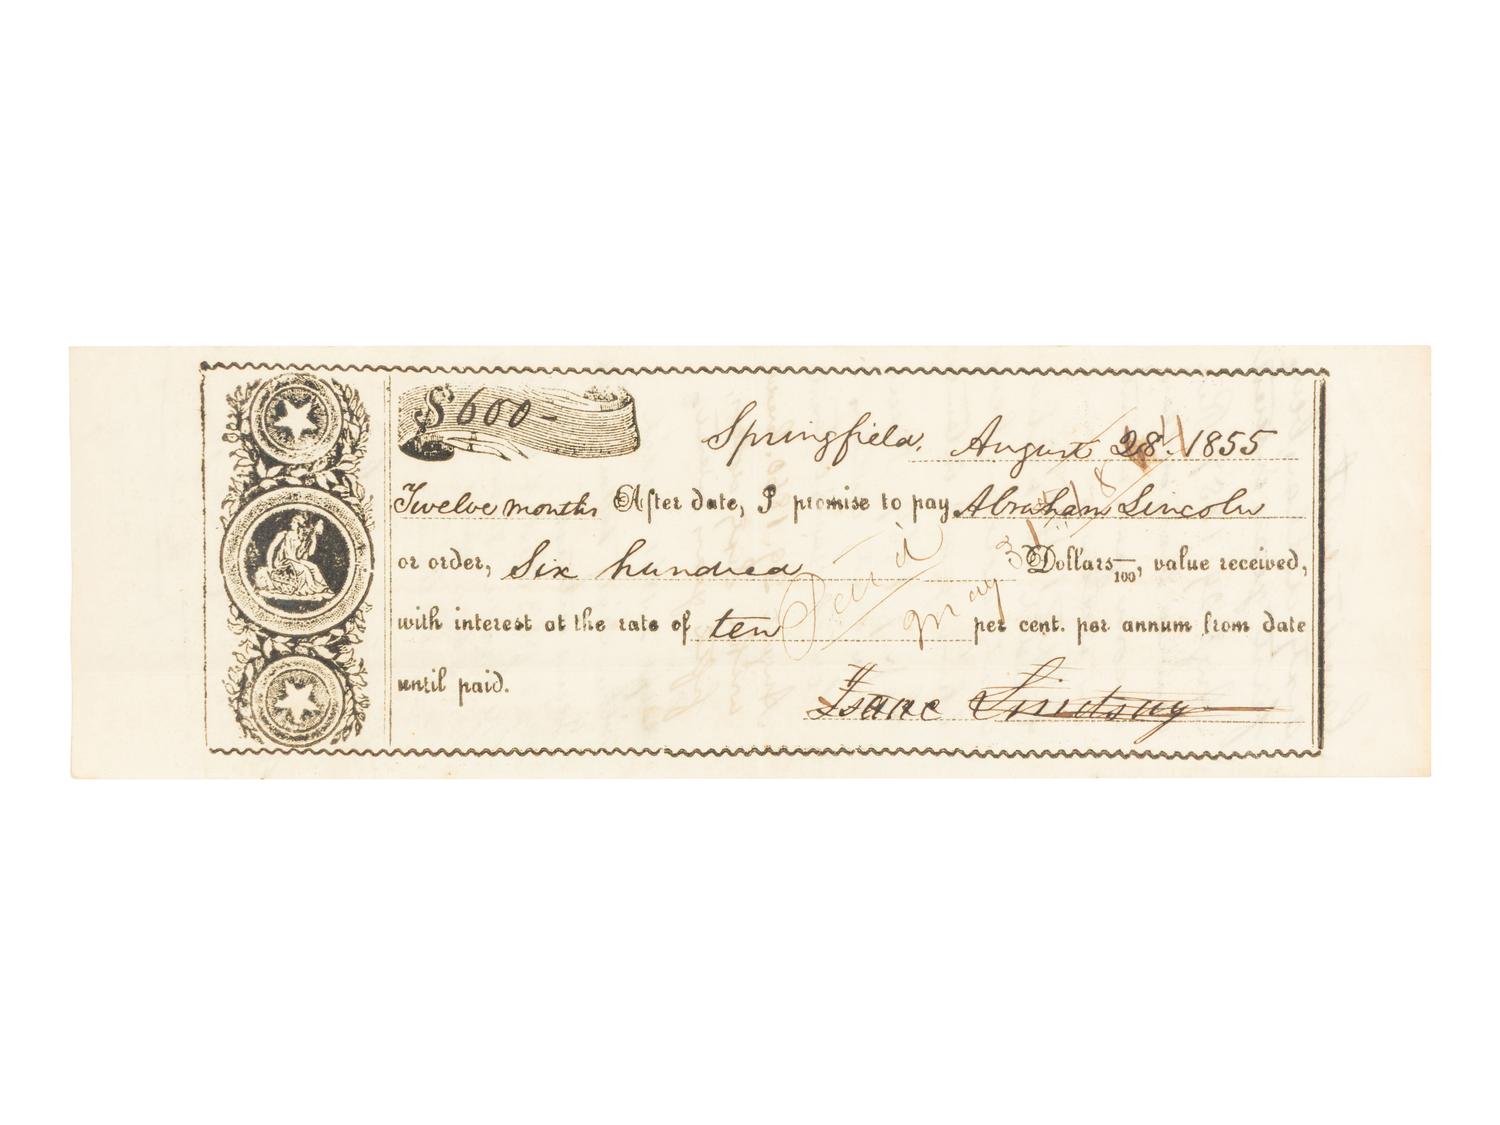 $600-
Springfield, August 28. 1855
Twelve months After date, I promise to pay Abraham Lincoln
or order, Six hundred Dollars /100, value received,
with interest at the rate of ten per cent. per annum from date
until paid.
Isaac Lindsay
Paid May 31